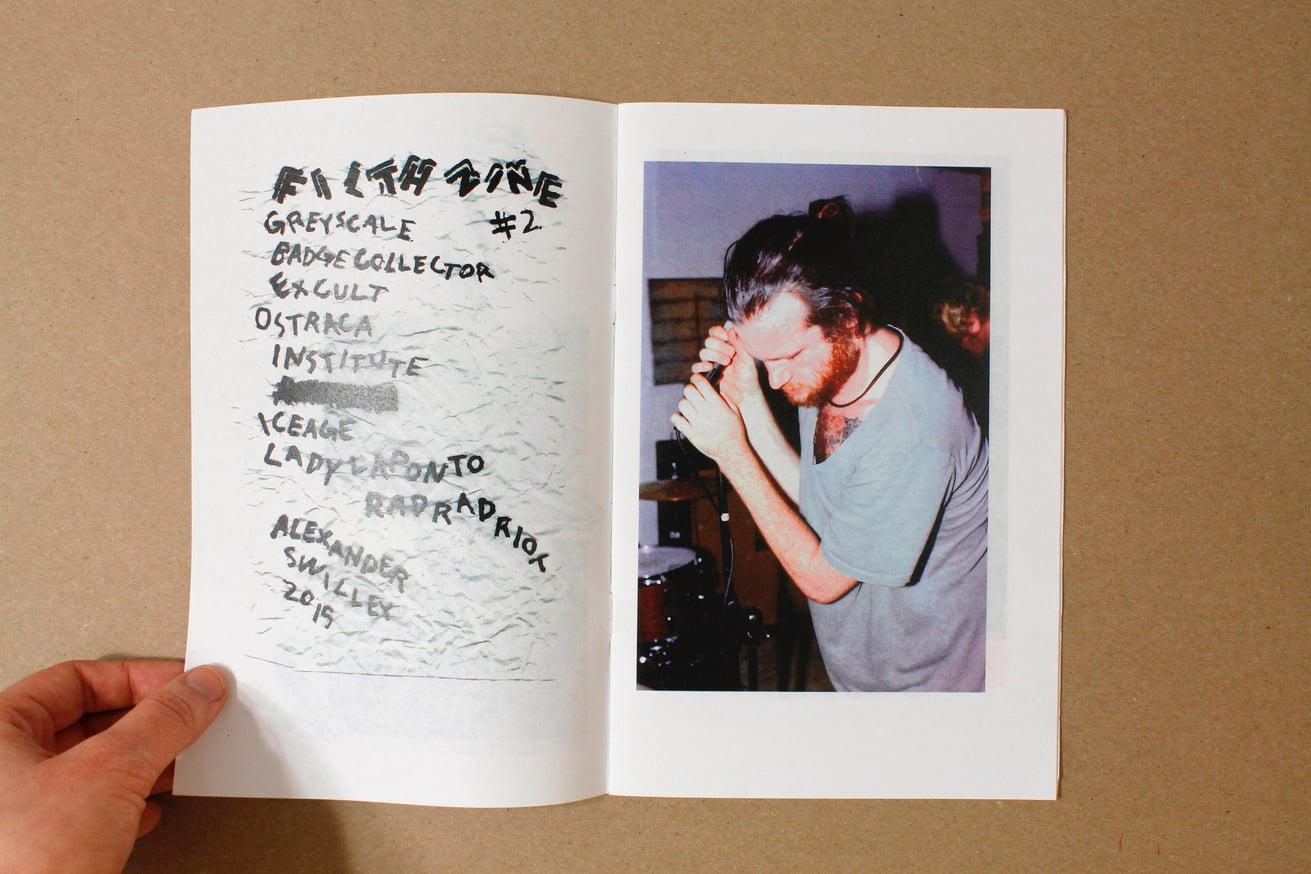 FILTH ZINE
#2
GREYSCALE
BADGECOLLECTOR
EXCULT
OSTRACA
INSTITUTE
ICEAGE
LADYLAPONTO
RADRADRIOT
ALEXANDER
SWILLEX
2015